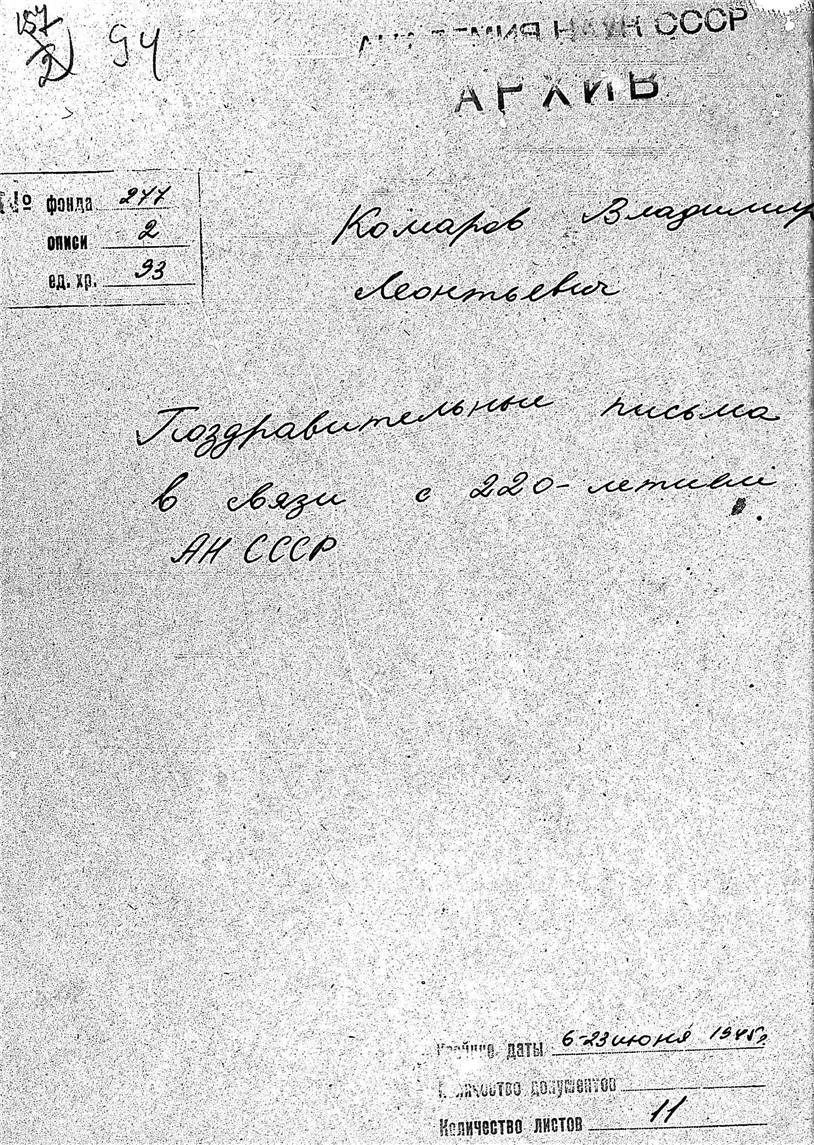 157
2
94
АКАДЕМИЯ НАУК СССР
АРХИВ
№ фонда 277
описи 2
ед. хр. 93
Комаров Владимир
Леонтьевич
Поздравительные письма
в связи с 220-летием
АН СССР
Крайние даты 6-23 июня 1945г.
Количество документов
Количество листов 11